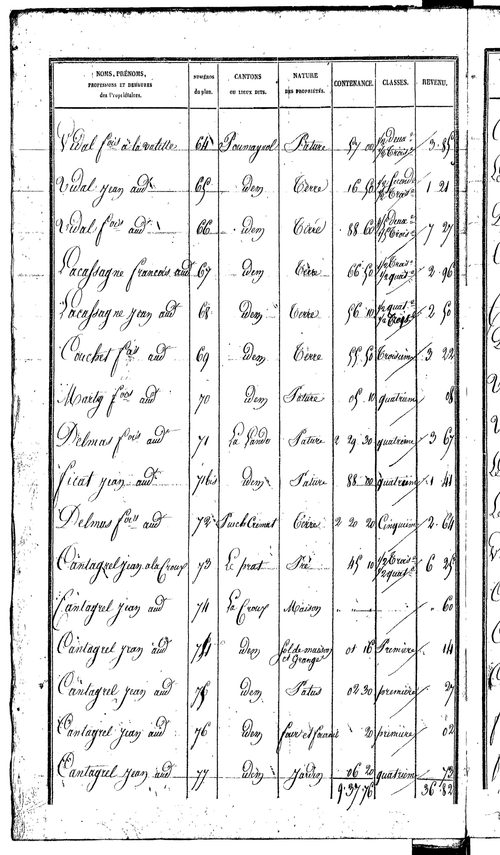 NOMS, PRÉNOMS, PROFESSIONS ET DEMEURES des Propriétaires. NUMÉROS du plan. CANTONS OU LIEUX DITS. NATURE DES PROPRIÉTÉS. CONTENANCE. CLASSES. REVENU.
Vidal fois à la valette 64 Poumayrol Pâture 57 00 1/2 Deux.e 1/2 Trois.e 3 85
Vidal jean aud.t 65 idem Terre 16 50 1/2 Seconde 1/2 Trois.e 1 21
Vidal fois aud.t 66 idem Terre 88 60 1/2 Deux.e 1/2 Trois.e 7 27
Lacassagne francois aud 67 idem Terre 66 50 1/2 Trois.e 1/2 quat.e 2 96
Lacassagne jean aud 68 idem Terre 56 10 1/2 quat.e 1/2 Trois.e 2 50
Couches f.ois aud 69 idem Terre 55 50 Troisieme 3 22
Marty f.ois aud 70 idem Pature 05 10 quatrieme 08
Delmas f.ois aud 71 La Lande Pature 2 29 30 quatrième 3 67
ficat jean aud 71 bis idem Pature 88 00 quatrieme 1 41
Delmas f.ois aud 72 Puech Crémat Terre 2 20 20 Cinquiem 2 64
Cantagrel jean a la Croux 73 Le prat Pré 45 10 1/2 Trois.e 1/2 quat.e 6 25
Cantagrel jean aud 74 La Croux Maison 60
Cantagrel jean aud idem sol de maison et Grange 01 16 Premiere 14
Cantagrel jean aud 75 idem Patus 02 30 premiere 27
Cantagrel jean aud 76 idem four et fournil 20 premiere 02
Cantagrel jean aud 77 idem jardin 06 20 quatrieme 73
9 37 76 36 82